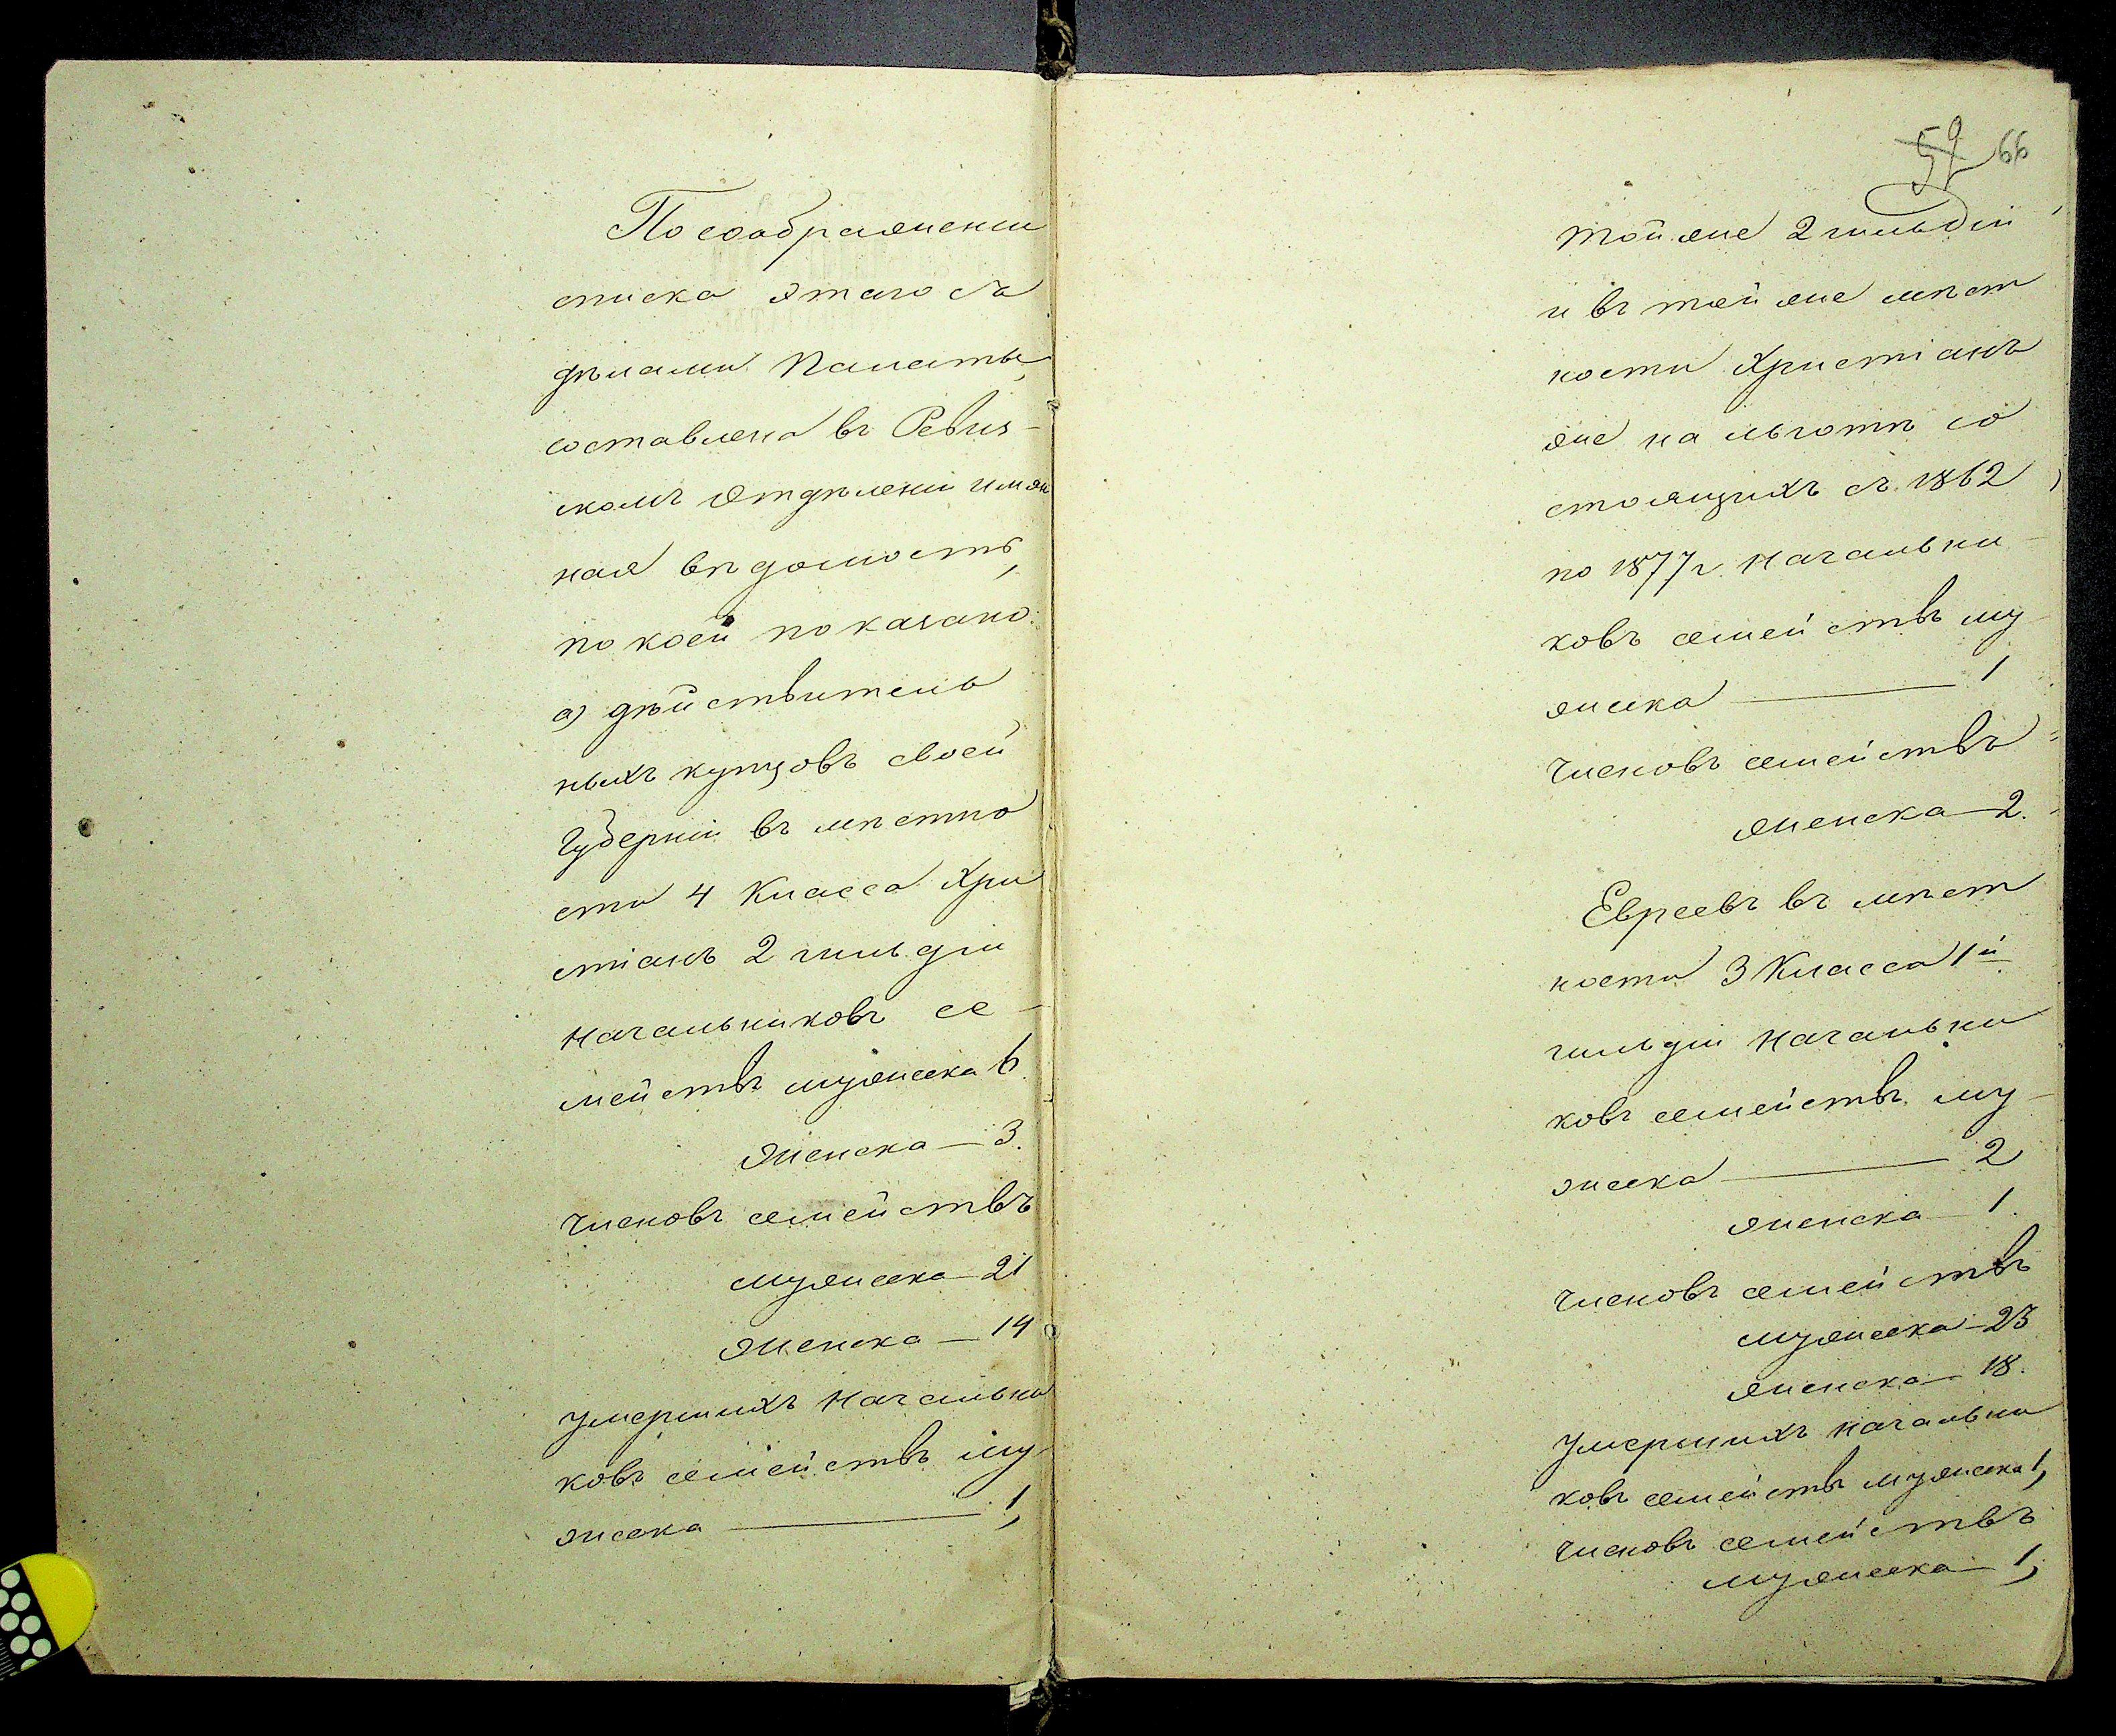 По соображении
списка этаго съ
дѣлами Палаты,
составлена въ Ревиз-
скомъ Отдѣленіи имян
ная вѣдомость,
по коей показано:
а) дѣйствитель
ныхъ купцовъ своей
Губерніи въ мѣстно
сти 4 Класса Хри
стіанъ 2 гильдіи
начальниковъ се-
мействъ мужеска 6.
женска — 3.
членовъ семействъ
мужеска — 21
женска — 14
умершихъ начальни
ковъ семействъ му-
жеска — 1,
59 66
той же 2 гильдіи
и въ той же мѣст
ности Христіанъ
же на льготѣ со
стоящихъ съ 1862
по 1877 г. начальни-
ковъ семействъ му-
жеска — 1
членовъ семействъ
женска — 2.
Евреевъ въ мѣст
ности 3 Класса 1й
гильдіи начальни
ковъ семействъ му-
жеска — 2
женска — 1.
членовъ семействъ
мужеска — 23
женска — 18.
умершихъ начальни
ковъ семействъ мужеска 1,
членовъ семействъ
мужеска — 1,